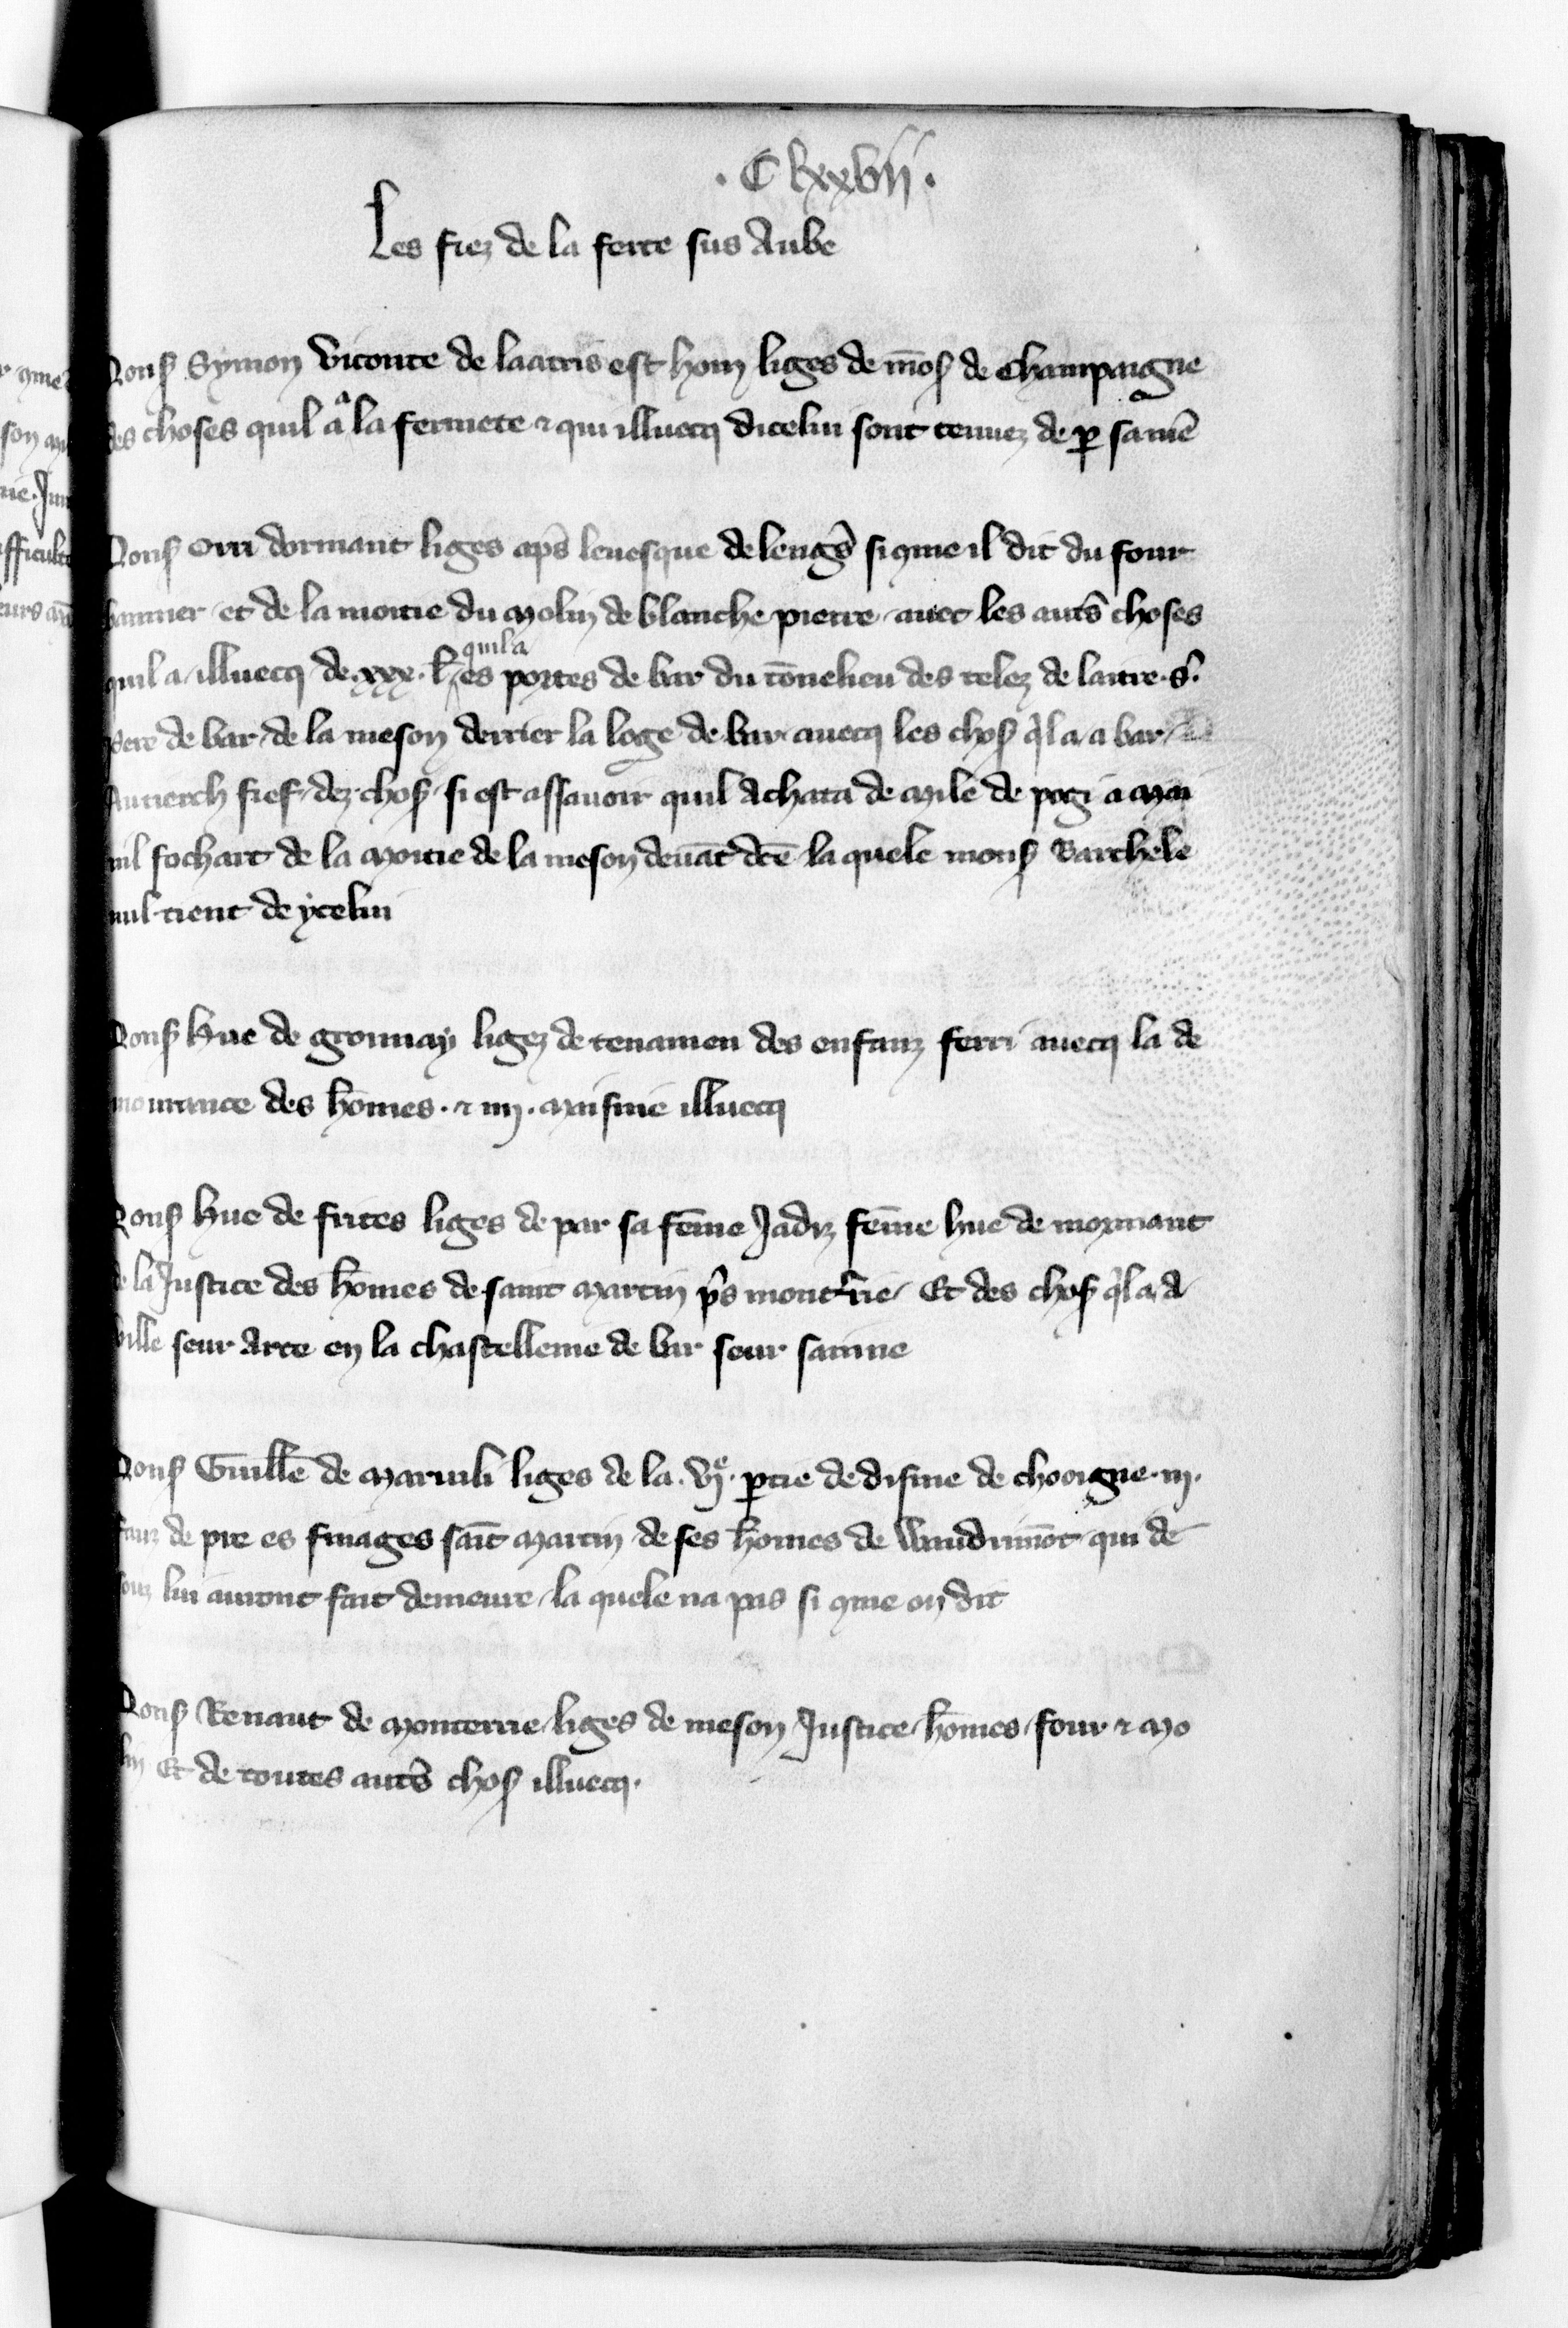 . C lxxvii .
Les fiez de la ferte sus Aube
Mons Symon viconte de laatris est hom liges de mos de Champaigne
des choses quil a la fermete & qui illuecq dicelui sont tenuez de p same
Mons Orri dormant liges aps levesque de lengs si 9me il dit du four
bannier et de la moitie du molin de blanche pierre avec les auts choses
quil a
quil a illuecq de .xxx. l es portes de bar du tonelieu des telez de lautre .s.
de bar de la meson derrier la loge de bar avecq les chos qla a bar
fief dez chos si est assavoir quil achata de mile de pogi a mai
nil fochart de la moitie de la meson devat dce la quele mons Barthele
tient de ycelui
Mons Hue de gronnay ligez de tenamen des enfanz ferri avecq la de
mourance des homes . & iiij . maisnie illuecq
Mons Hue de frites liges de par sa feme Jadiz feme hue de mormant
de la Justice des homes de saint martin ps montrie Et des chos qla a
ville seur Arce en la chastellenie de bar seur sainne
Mons Guille de maruili liges de la .vje. ptie de disme de chooigne .iij.
fauz de pre es finages sait martin de ses homes de Vaudrimot qui de
souz lui auront fait demeure la quele na pas si 9me on dit
Mons Renaut de monterrie liges de meson Justice homes four & mo
lin Et de toutes auts chos illuecq.